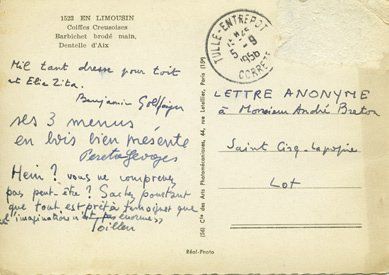 1523 EN LIMOUSIN
Coiffes Creusoises
Barbichet brodé main,
Dentelle d'Aix
TULLE-ENTREPOT
5-9
1956
CORREZE
Mil tant dresse pour toit
et Elie Zita.
Benjamin
ses 3 menus
en bois bien présenté
Hein? vous ne comprenez
pas peut-être? Sachez pourtant
que tout est prêt à
et imagination n'est pas énorme »
LETTRE ANONYME
à Monsieur André Breton
Saint Cirq-Lapopie
Lot
(56) Cie des Arts Photomécaniques, 44, rue Letellier, Paris (15e)
Réal-Photo